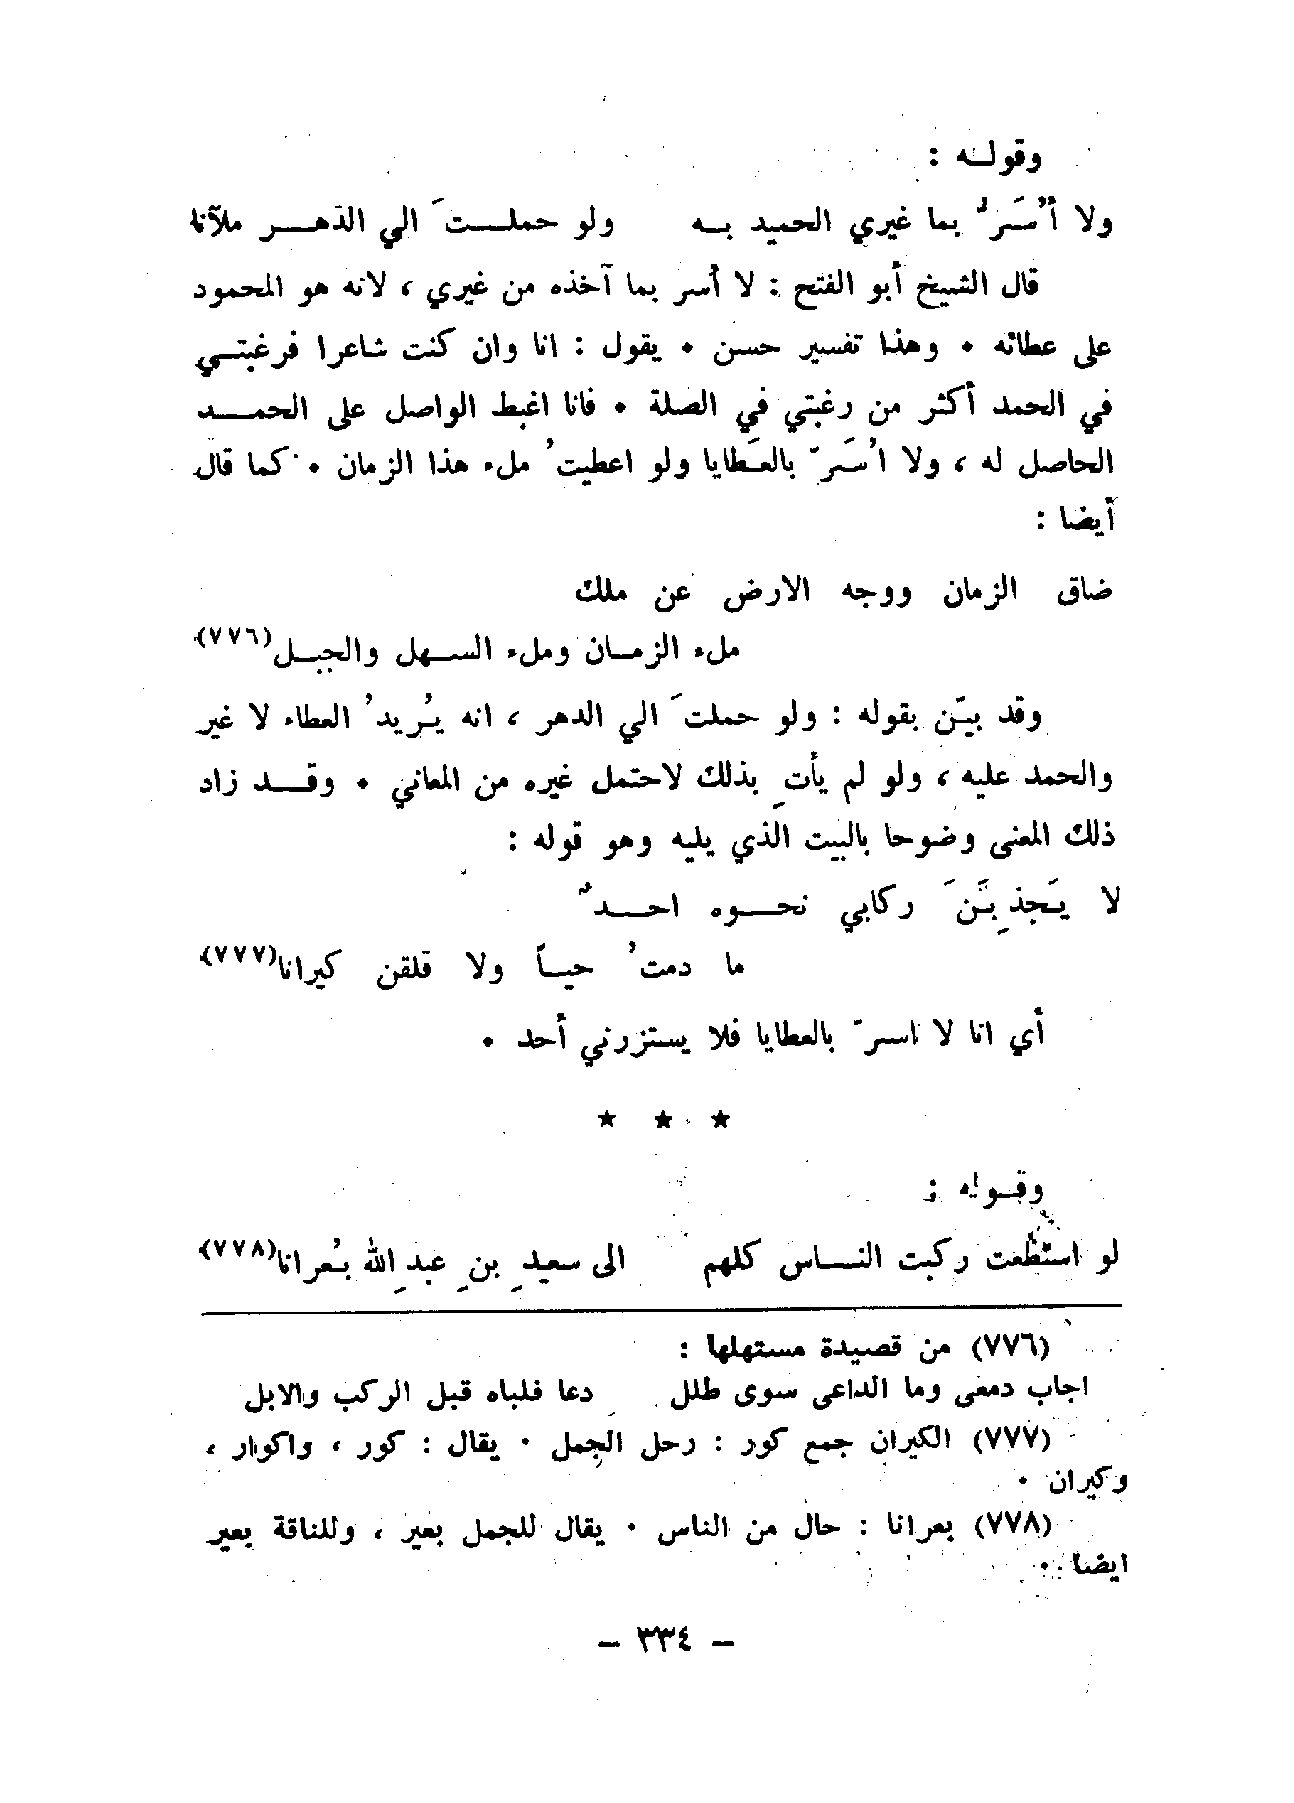 وقولـه :
ولا أُسَرُّ بما غيري الحميد بـه ولو حملـتَ الي الدهـر ملآنا
قال الشيخ أبو الفتح : لا أسر بما آخذه من غيري ، لانه هو المحمود
على عطائه ٠ وهذا تفسير حسن ٠ يقول : انا وان كنت شاعرا فرغبتـي
في الحمد أكثر من رغبتي في الصلة ٠ فانا اغبط الواصل على الحمـد
الحاصل له ، ولا اُسَرّ بالعَطايا ولو اعطيتُ ملء هذا الزمان ٠ كما قال
أيضا :
ضاق الزمان ووجه الارض عن ملك
ملء الزمـان وملء السـهل والجبـل(٧٧٦)
وقد بيّن بقوله : ولو حملتَ الي الدهر ، انه يُريدُ العطاء لا غير
والحمد عليه ، ولو لم يأتِ بذلك لاحتمل غيره من المعاني ٠ وقـد زاد
ذلك المعنى وضوحا بالبيت الذي يليه وهو قوله :
لا يَجذِبَنَّ ركابي نحـوه احـدٌ
ما دمتُ حيـاً ولا قلقن كيرانا(٧٧٧)
أي انا لا اسرّ بالعطايا فلا يستزرني أحد ٠
★ ★ ★
وقـوله :
لو استطعت ركبت النـاس كلهم الى سعيدِ بنِ عبدِ الله بُعرانا(٧٧٨)
(٧٧٦) من قصيدة مستهلها :
اجاب دمعى وما الداعى سوى طلل دعا فلباه قبل الركب والابل
(٧٧٧) الكيران جمع كور : رحل الجمل ٠ يقال : كور ، واكوار ،
وكيران ٠
(٧٧٨) بعرانا : حال من الناس ٠ يقال للجمل بعير ، وللناقة بعير
ايضا ٠
– ٣٣٤ –